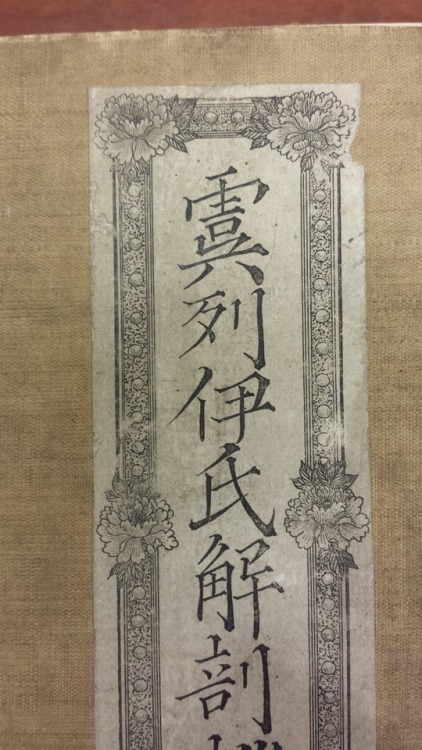 虞列伊氏解剖